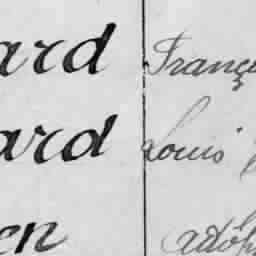 ard Franç
ard Louis
en adolp